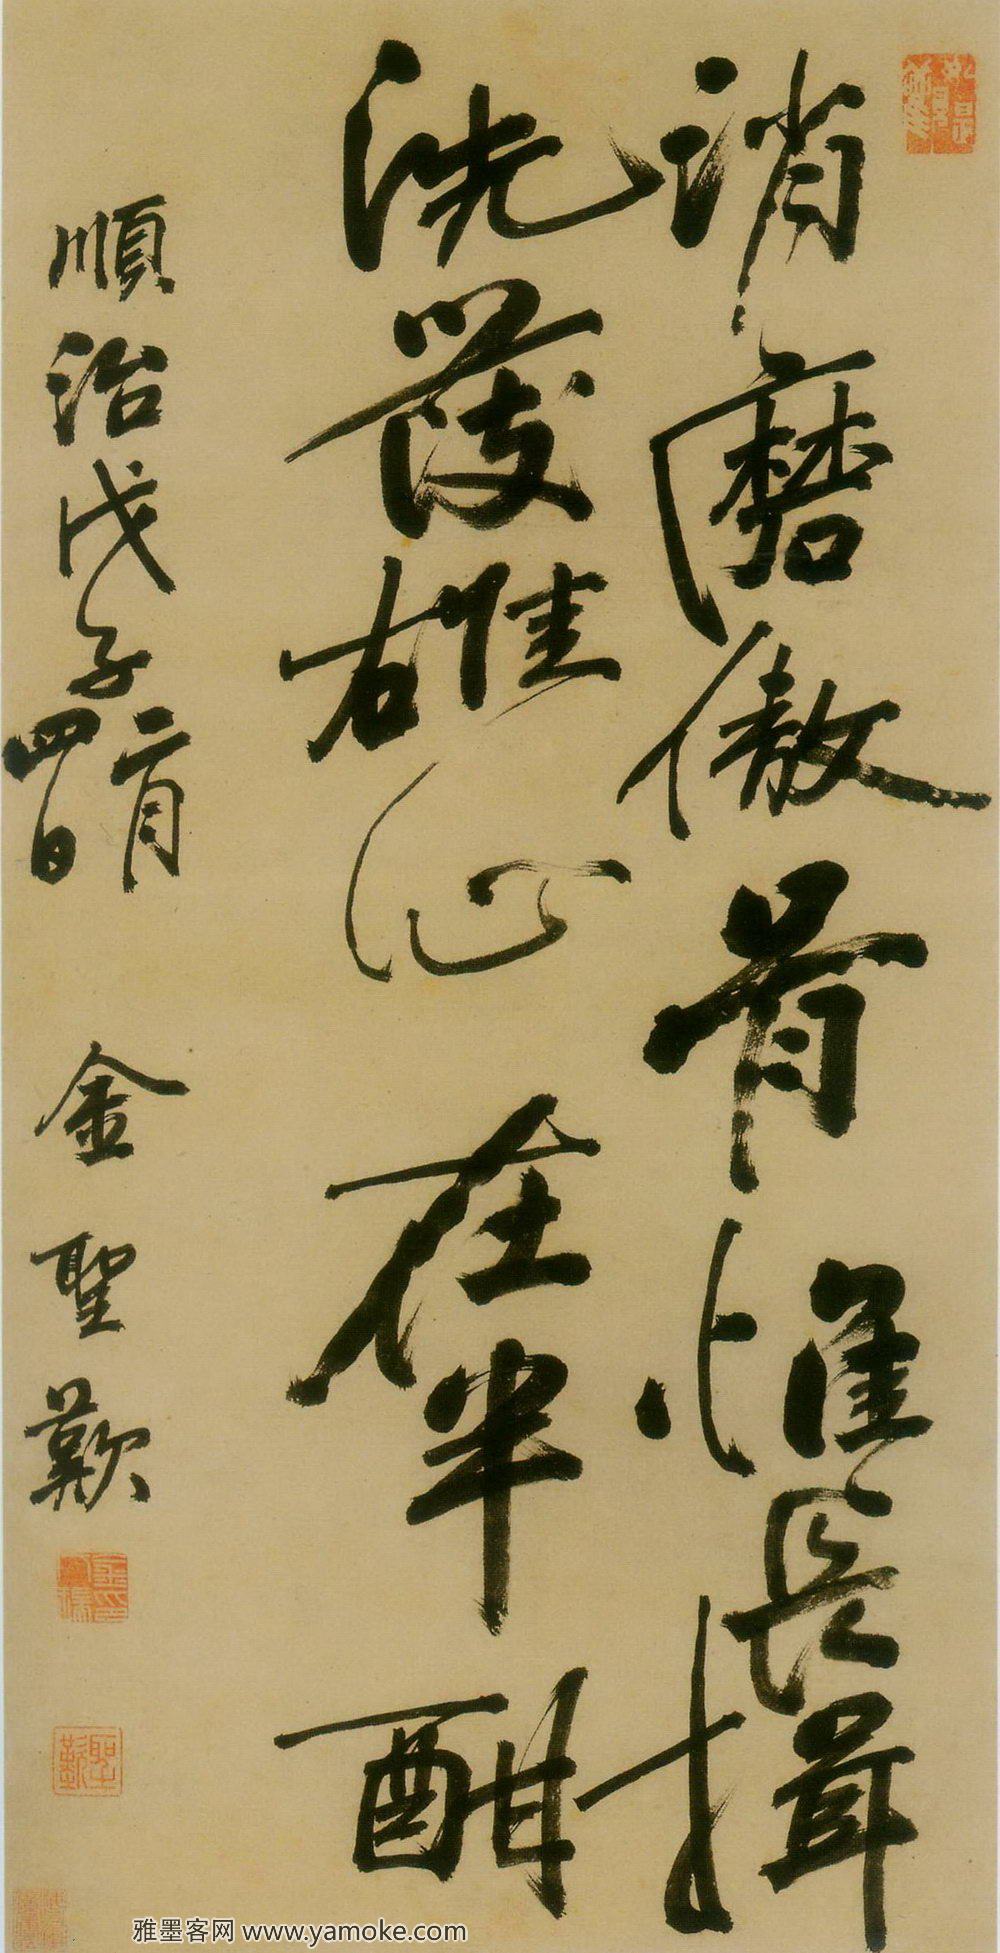 消磨傲骨惟長揖
洗發雄心在半酣
順治戊子二月四日 金聖歎
聖歎
雅墨客网 www.yamoke.com